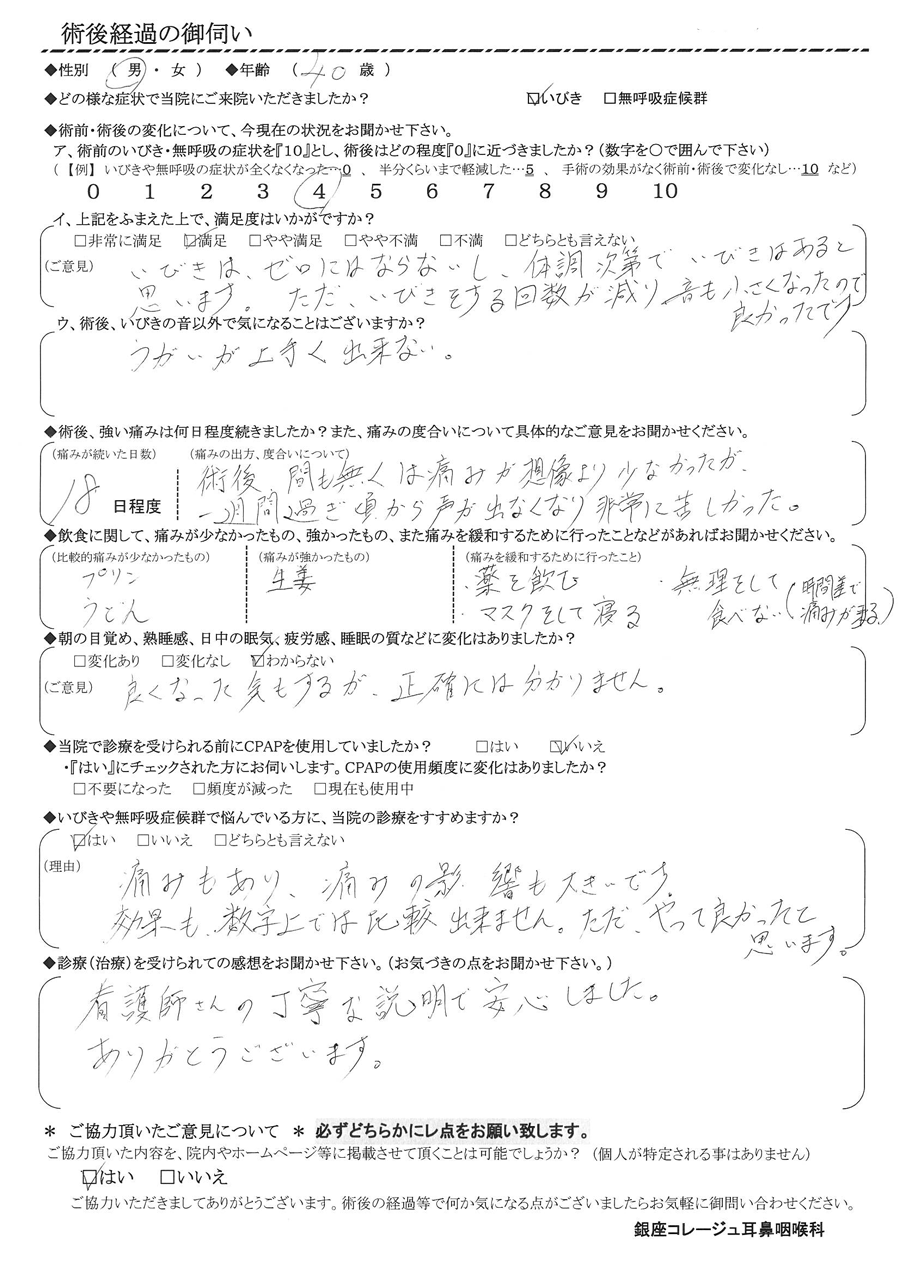 術後経過の御伺い
◆性別 （ 男 ・ 女 ） ◆年齢 （ 40 歳 ）
◆どの様な症状で当院にご来院いただきましたか？ ☑いびき □無呼吸症候群
◆術前・術後の変化について、今現在の状況をお聞かせ下さい。
ア、術前のいびき・無呼吸の症状を『10』とし、術後はどの程度『0』に近づきましたか？（数字を〇で囲んで下さい）
（ 【例】 いびきや無呼吸の症状が全くなくなった…0 、 半分くらいまで軽減した…5 、 手術の効果がなく術前・術後で変化なし…10 など）
0 1 2 3 4 5 6 7 8 9 10
イ、上記をふまえた上で、満足度はいかがですか？
□非常に満足 ☑満足 □やや満足 □やや不満 □不満 □どちらとも言えない
(ご意見) いびきは、ゼロにはならないし、体調次第でいびきはあると
思います。 ただ、いびきをする回数が減り、音も小さくなったので
良かったです
ウ、術後、いびきの音以外で気になることはございますか？
うがいが上手く出来ない。
◆術後、強い痛みは何日程度続きましたか？また、痛みの度合いについて具体的なご意見をお聞かせください。
(痛みが続いた日数) (痛みの出方、度合いについて)
18 日程度 術後、間も無くは痛みが想像より少なかったが、
一週間過ぎ頃から声が出なくなり非常に苦しかった。
◆飲食に関して、痛みが少なかったもの、強かったもの、また痛みを緩和するために行ったことなどがあればお聞かせください。
(比較的痛みが少なかったもの) (痛みが強かったもの) (痛みを緩和するために行ったこと)
プリン 生姜 ・薬を飲む ・無理をして
うどん ・マスクをして寝る 食べない(時間差で痛みが来る)
◆朝の目覚め、熟睡感、日中の眠気、疲労感、睡眠の質などに変化はありましたか？
□変化あり □変化なし ☑わからない
(ご意見) 良くなった気もするが、正確には分かりません。
◆当院で診療を受けられる前にCPAPを使用していましたか？ □はい ☑いいえ
・『はい』にチェックされた方にお伺いします。CPAPの使用頻度に変化はありましたか？
□不要になった □頻度が減った □現在も使用中
◆いびきや無呼吸症候群で悩んでいる方に、当院の診療をすすめますか？
☑はい □いいえ □どちらとも言えない
(理由) 痛みもあり、痛みの影響も大きいです。
効果も、数字上では比較出来ません。ただ、やって良かったと
思います。
◆診療（治療）を受けられての感想をお聞かせ下さい。（お気づきの点をお聞かせ下さい。）
看護師さんの丁寧な説明で安心しました。
ありがとうございます。
＊ ご協力頂いたご意見について ＊ 必ずどちらかにレ点をお願い致します。
ご協力頂いた内容を、院内やホームページ等に掲載させて頂くことは可能でしょうか？ （個人が特定される事はありません）
☑はい □いいえ
ご協力いただきましてありがとうございます。術後の経過等で何か気になる点がございましたらお気軽に御問い合わせください。
銀座コレージュ耳鼻咽喉科